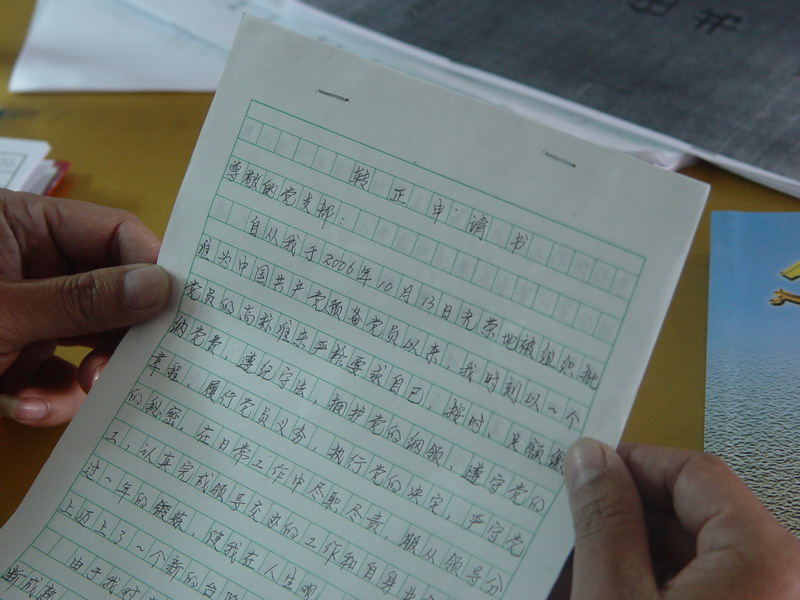 转正申请书
尊敬的党支部：
自从我于2006年10月13日光荣地被组织批
准为中国共产党预备党员以来，我时刻以一个
党员的高标准来严格要求自己，按时、足额缴
纳党费，遵纪守法，拥护党的纲领，遵守党的
章程，履行党员义务，执行党的决定，严守党
的秘密。在日常工作中尽职尽责，服从领导分
工，认真完成领导交办的工作和自身
过一年的锻炼，使我在人生
上迈上了一个新的台阶
由于我对
断成